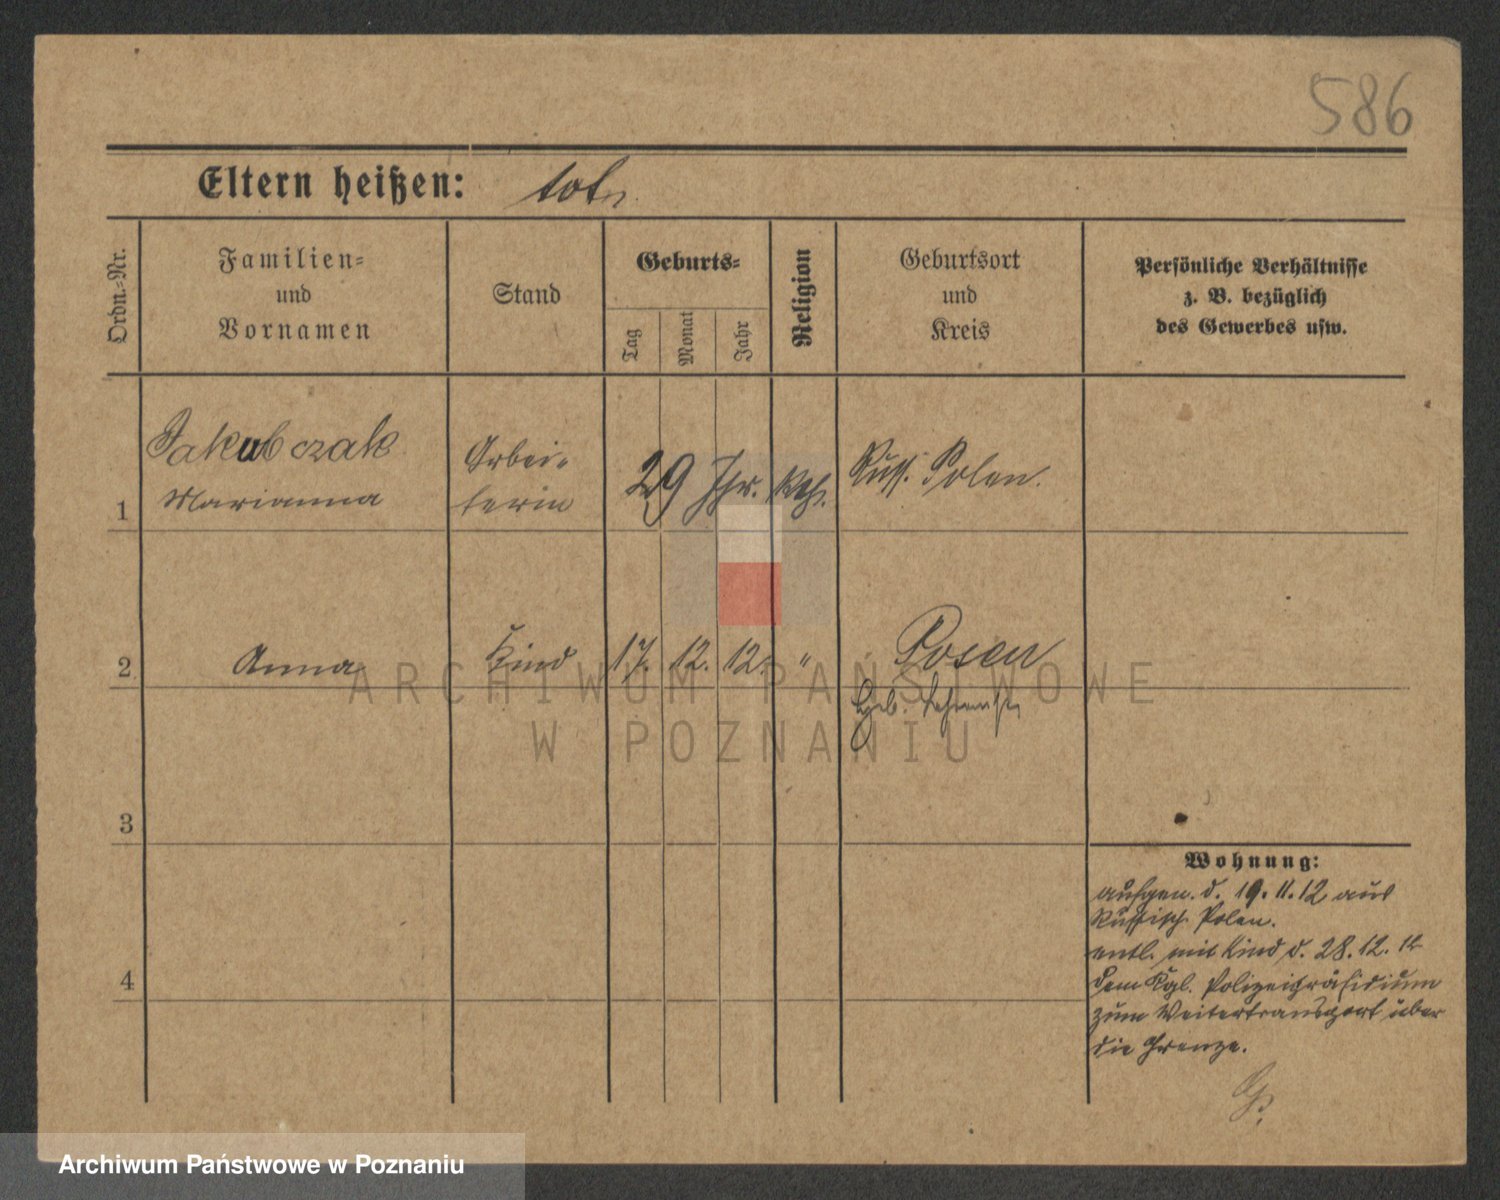 586
Eltern heißen: tot.
Ordn.-Nr.
Familien-
und
Vornamen
Stand
Geburts-
Tag
Monat
Jahr
Religion
Geburtsort
und
Kreis
Persönliche Verhältnisse
z. B. bezüglich
des Gewerbes usw.
1
Jakubczak
Marianna
Arbei-
terin
29 Jhr.
kth.
Russ. Polen.
2
Anna
Kind
17. 12. 12.
"
Posen
3
4
Wohnung:
aufgen. d. 19.11.12 aus
Russisch Polen.
entl. mit Kind d. 28.12.12
dem Kgl. Polizeipräsidium
zum Weitertransport über
die Grenze.
ARCHIWUM PAŃSTWOWE
W POZNANIU
Archiwum Państwowe w Poznaniu